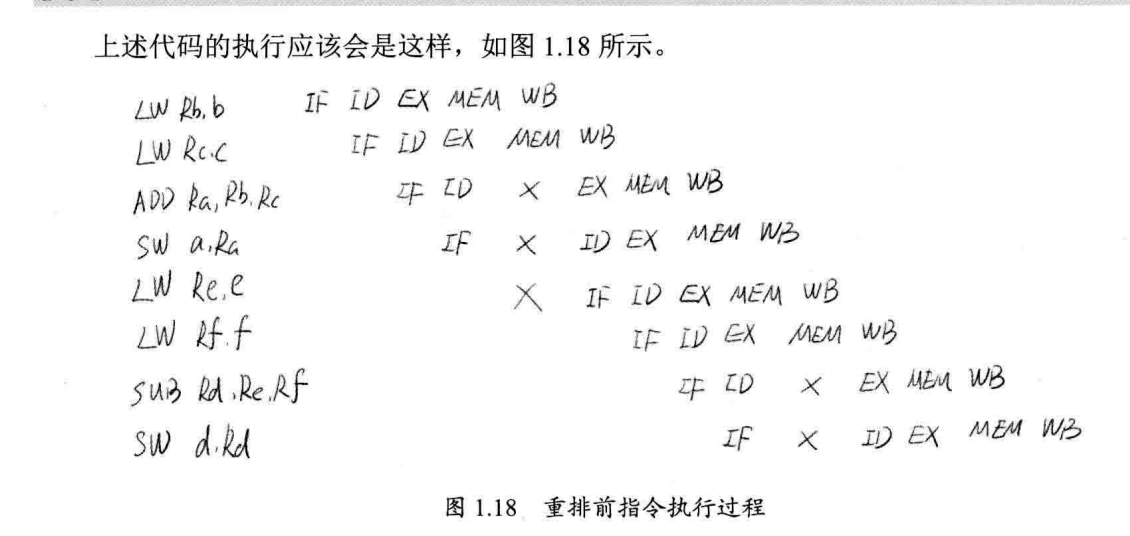 上述代码的执行应该会是这样，如图 1.18 所示。
LW Rb,b IF ID EX MEM WB
LW Rc,c IF ID EX MEM WB
ADD Ra,Rb,Rc IF ID × EX MEM WB
SW a,Ra IF × ID EX MEM WB
LW Re,e × IF ID EX MEM WB
LW Rf,f IF ID EX MEM WB
SUB Rd,Re,Rf IF ID × EX MEM WB
SW d,Rd IF × ID EX MEM WB
图 1.18 重排前指令执行过程